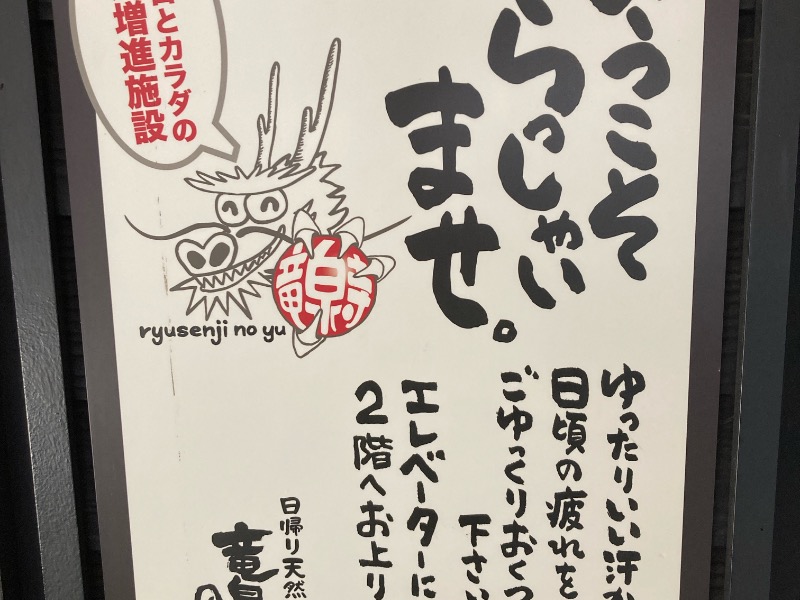 ようこそ
らっしゃい
ませ。
とカラダの
増進施設
竜泉寺
ryusenji no yu
ゆったりいい汗か
日頃の疲れを
ごゆっくりおくつ
下さい
エレベーターに
2階へお上り
日帰り天然
竜泉